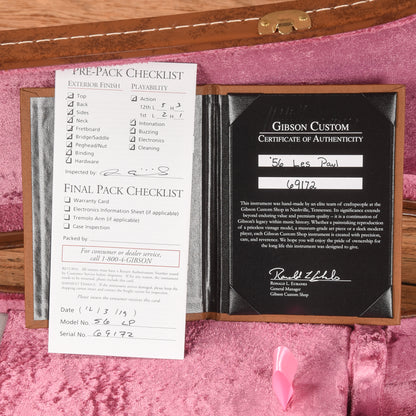 Gibson
PRE-PACK CHECKLIST
EXTERIOR FINISH PLAYABILITY
Top
Back
Sides
Neck
Fretboard
Bridge/Saddle
Peghead/Nut
Binding
Hardware
Action
12th 5 3
1st 2 1
Intonation
Buzzing
Electronics
Cleaning
Inspected by:
FINAL PACK CHECKLIST
Warranty Card
Electronics Information Sheet (if applicable)
Tremolo Arm (if applicable)
Case Inspection
Packed by
For consumer or dealer service,
call 1-800-4-GIBSON
Please return the customer receipt card.
Date 12/3/19
Model No. 56 LP
Serial No. 69172
GIBSON CUSTOM
CERTIFICATE OF AUTHENTICITY
'56 Les Paul
69172
This instrument was hand-made by an elite team of craftspeople at the
Gibson Custom Shop in Nashville, Tennessee. Its significance extends
beyond enduring value and premium quality – it is a continuation of
Gibson's legacy within music history. Whether a painstaking reproduction
of a priceless vintage model, a museum-grade set piece or a sleek modern
player, each Gibson Custom Shop instrument is created with precision,
care, and reverence. We hope you will enjoy the pride of ownership for
the long life this instrument was designed to give.
General Manager
Gibson Custom Shop